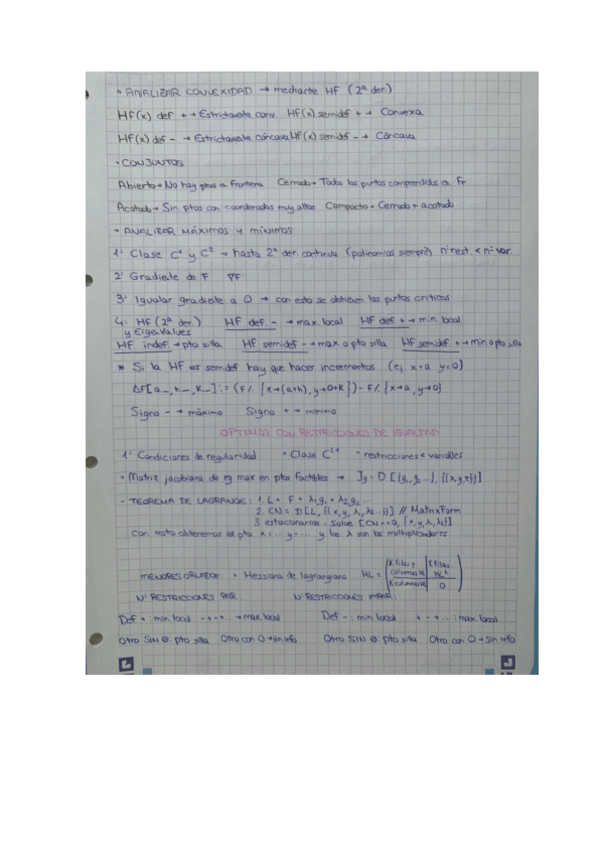 • ANALIZAR CONVEXIDAD → mediante HF (2ª der.)
HF(x) def + → Estrictamente conv. HF(x) semidef + → Convexa
HF(x) def - → Estrictamente cóncava HF(x) semidef - → Cóncava
• CONJUNTOS
Abierto → No hay ptos a frontera Cerrado → Todos los puntos comprendidos a Fr
Acotado → Sin ptos con coordenadas muy altas Compacto → Cerrado + acotado
• ANALIZAR MÁXIMOS Y MÍNIMOS
1º Clase C¹ y C² → hasta 2ª der. continua (polinomios siempre) nº rest. < nº var.
2º Gradiente de F ∇F
3º Igualar gradiente a 0 → con esto se obtienen los puntos críticos
4: HF (2ª der.) HF def. - → max. local HF def + → min local
y Eigenvalues
HF indef → pto silla HF semidef - → max. o pto silla HF semidef + → min o pto silla
* Si la HF es semidef hay que hacer incrementos (ej x=a y=0)
ΔF[a_, h_, k_] := (F /. {x→(a+h), y→0+k}) - F /. {x→a, y→0}
Signo - → máximo Signo + → mínimo
OPTIMOS CON RESTRICCIONES DE IGUALDAD
1º Condiciones de regularidad • Clase C¹ • restricciones < variables
• Matriz jacobiana de rg max en ptos factibles → Jg = D[{g₁, g₂ ...}, {{x,y,z}}]
- TEOREMA DE LAGRANGE: 1. L = F + λ₁g₁ + λ₂g₂ ...
2. CN = D[L, {{x, y, λ₁, λ₂ ...}}] // MatrixForm
3. estacionarios = Solve [CN==0, {x, y, λ₁, λ₂}]
Con esto obtenemos el pto x=... y=... y los λ son los multiplicadores
MENORES ORLADOS • Hessiana de lagrangiana HL =
K Filas y columnas HL K Filas HL
K columnas HL 0
Nº RESTRICCIONES PAR: Nº RESTRICCIONES IMPAR:
Def + : min local - + - + ... → max. local Def - : min local + - + ... : max. local
Otro SIN 0: pto silla Otro con 0 → sin info Otro SIN 0: pto silla Otro con 0 → sin info